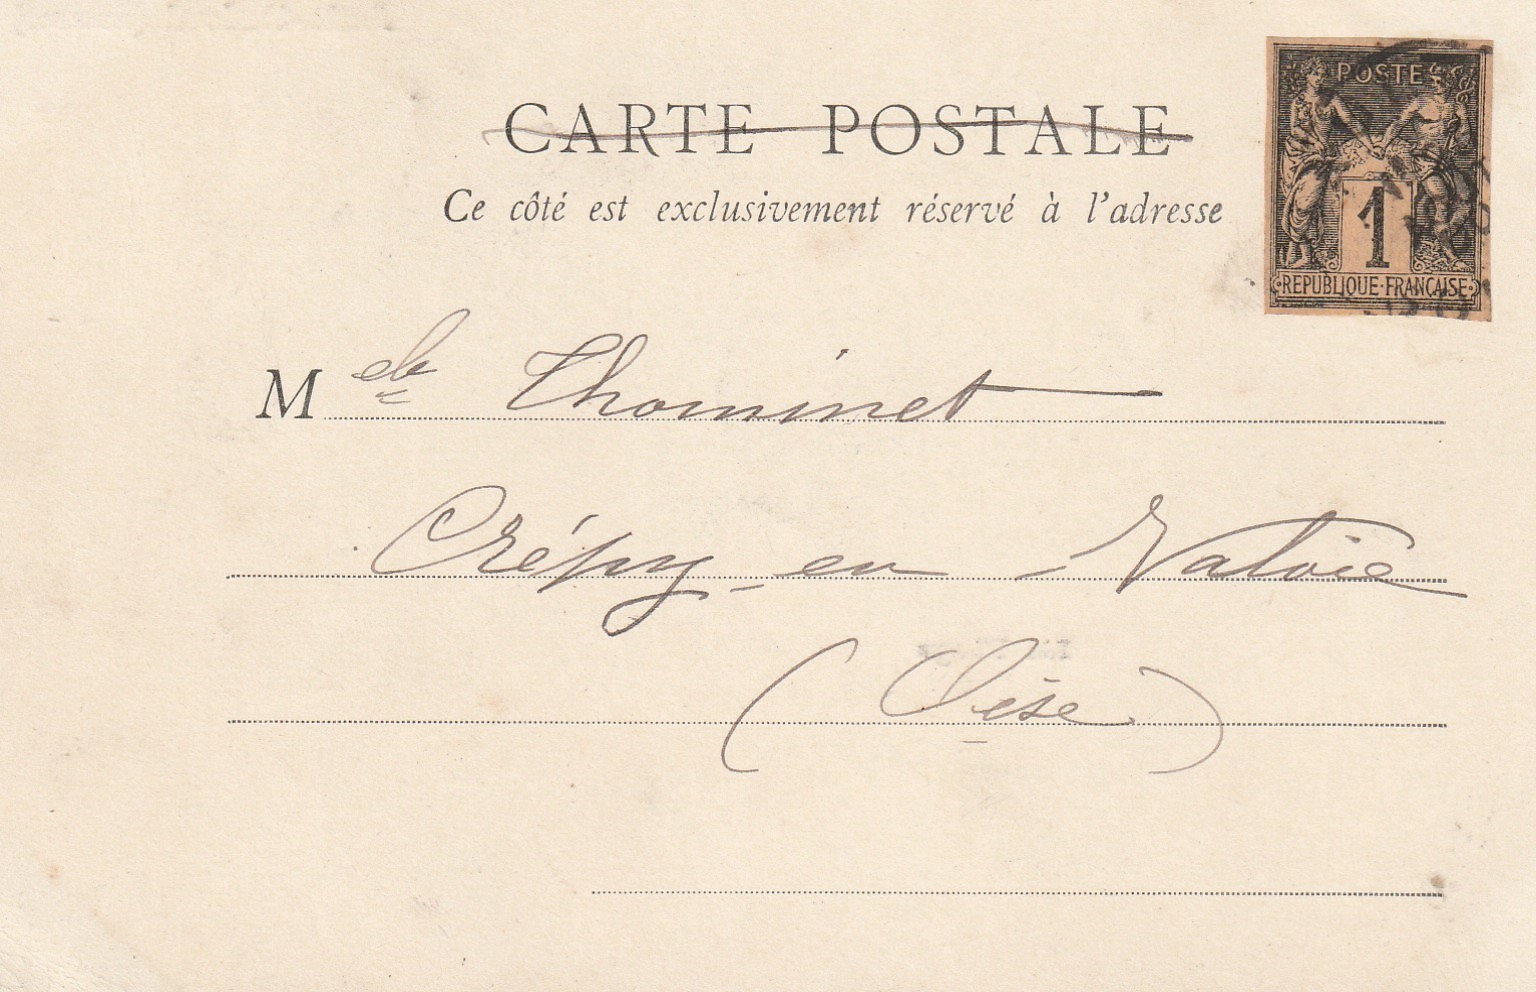 CARTE POSTALE
Ce côté est exclusivement réservé à l'adresse
POSTES
1
REPUBLIQUE·FRANÇAISE
Melle Thominet
Crépy-en-Valois
(Oise)